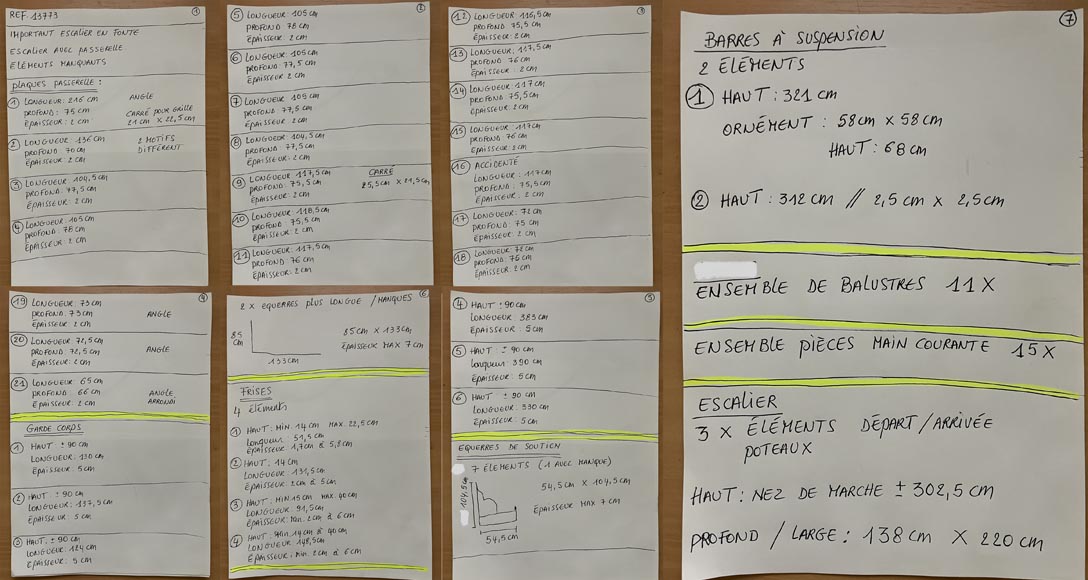 ①
REF. 13773
IMPORTANT ESCALIER EN FONTE
ESCALIER AVEC PASSERELLE
ÉLÉMENTS MANQUANTS
PLAQUES PASSERELLE :
① LONGUEUR: 216 cm ANGLE
PROFOND: 75 cm CARRÉ POUR GRILLE
ÉPAISSEUR: 2 cm 21 cm X 22,5 cm
② LONGUEUR: 136 cm 2 MOTIFS
PROFOND: 70 cm DIFFÉRENT
ÉPAISSEUR: 2 cm
③ LONGUEUR: 104,5 cm
PROFOND: 77,5 cm
ÉPAISSEUR: 2 cm
④ LONGUEUR: 105 cm
PROFOND: 78 cm
ÉPAISSEUR: 2 cm
②
⑤ LONGUEUR: 105 cm
PROFOND: 78 cm
ÉPAISSEUR: 2 cm
⑥ LONGUEUR: 105 cm
PROFOND: 77,5 cm
ÉPAISSEUR: 2 cm
⑦ LONGUEUR: 105 cm
PROFOND: 77,5 cm
ÉPAISSEUR: 2 cm
⑧ LONGUEUR: 104,5 cm
PROFOND: 77,5 cm
ÉPAISSEUR: 2 cm
⑨ LONGUEUR: 117,5 cm CARRÉ
PROFOND: 75,5 cm 25,5 cm X 21,5 cm
ÉPAISSEUR: 2 cm
⑩ LONGUEUR: 118,5 cm
PROFOND: 75,5 cm
ÉPAISSEUR: 2 cm
⑪ LONGUEUR: 117,5 cm
PROFOND: 76 cm
ÉPAISSEUR: 2 cm
③
⑫ LONGUEUR: 116,5 cm
PROFOND: 75,5 cm
ÉPAISSEUR: 2 cm
⑬ LONGUEUR: 117,5 cm
PROFOND: 76 cm
ÉPAISSEUR: 2 cm
⑭ LONGUEUR: 117 cm
PROFOND: 75,5 cm
ÉPAISSEUR: 2 cm
⑮ LONGUEUR: 117 cm
PROFOND: 76 cm
ÉPAISSEUR: 2 cm
⑯ ACCIDENTÉ
LONGUEUR: 117 cm
PROFOND: 75,5 cm
ÉPAISSEUR: 2 cm
⑰ LONGUEUR: 72 cm
PROFOND: 75 cm
ÉPAISSEUR: 2 cm
⑱ LONGUEUR: 72 cm
PROFOND: 76 cm
ÉPAISSEUR: 2 cm
④
⑲ LONGUEUR: 73 cm
PROFOND: 73 cm ANGLE
ÉPAISSEUR: 2 cm
⑳ LONGUEUR: 72,5 cm
PROFOND: 72,5 cm ANGLE
ÉPAISSEUR: 2 cm
㉑ LONGUEUR: 65 cm
PROFOND: 66 cm ANGLE
ÉPAISSEUR: 2 cm ARRONDI
GARDE CORPS
① HAUT: ± 90 cm
LONGUEUR: 130 cm
ÉPAISSEUR: 5 cm
② HAUT: ± 90 cm
LONGUEUR: 137,5 cm
ÉPAISSEUR: 5 cm
③ HAUT: ± 90 cm
LONGUEUR: 124 cm
ÉPAISSEUR: 5 cm
⑥
2 X EQUERRES PLUS LONGUE / MANQUES
85 cm
133 cm
85 cm X 133 cm
ÉPAISSEUR MAX 7 cm
FRISES
4 éléments
① HAUT: MIN. 14 cm MAX. 22,5 cm
Longueur: 51,5 cm
ÉPAISSEUR: 1,7 cm à 5,8 cm
② HAUT: 14 cm
LONGUEUR: 131,5 cm
ÉPAISSEUR: 2 cm à 5 cm
③ HAUT: MIN. 15 cm MAX. 40 cm
LONGUEUR: 91,5 cm
ÉPAISSEUR: MIN. 2 cm à 6 cm
④ HAUT: MIN. 14 cm à 40 cm
LONGUEUR: 148,5 cm
ÉPAISSEUR: MIN. 2 cm à 6 cm
⑤
④ HAUT ± 90 cm
LONGUEUR: 383 cm
ÉPAISSEUR: 5 cm
⑤ HAUT: ± 90 cm
Longueur: 390 cm
ÉPAISSEUR: 5 cm
⑥ HAUT: ± 90 cm
LONGUEUR: 330 cm
ÉPAISSEUR: 5 cm
EQUERRES DE SOUTIEN
7 ÉLÉMENTS (1 AVEC MANQUE)
104,5 cm
54,5 cm
54,5 cm X 104,5 cm
ÉPAISSEUR MAX 7 cm
⑦
BARRES À SUSPENSION
2 ÉLÉMENTS
① HAUT: 321 cm
ORNÉMENT : 58 cm X 58 cm
HAUT: 68 cm
② HAUT: 312 cm // 2,5 cm X 2,5 cm
ENSEMBLE DE BALUSTRES 11 X
ENSEMBLE PIÈCES MAIN COURANTE 15 X
ESCALIER
3 X ÉLÉMENTS DÉPART/ARRIVÉE
POTEAUX
HAUT: NEZ DE MARCHE ± 302,5 cm
PROFOND / LARGE : 138 cm X 220 cm